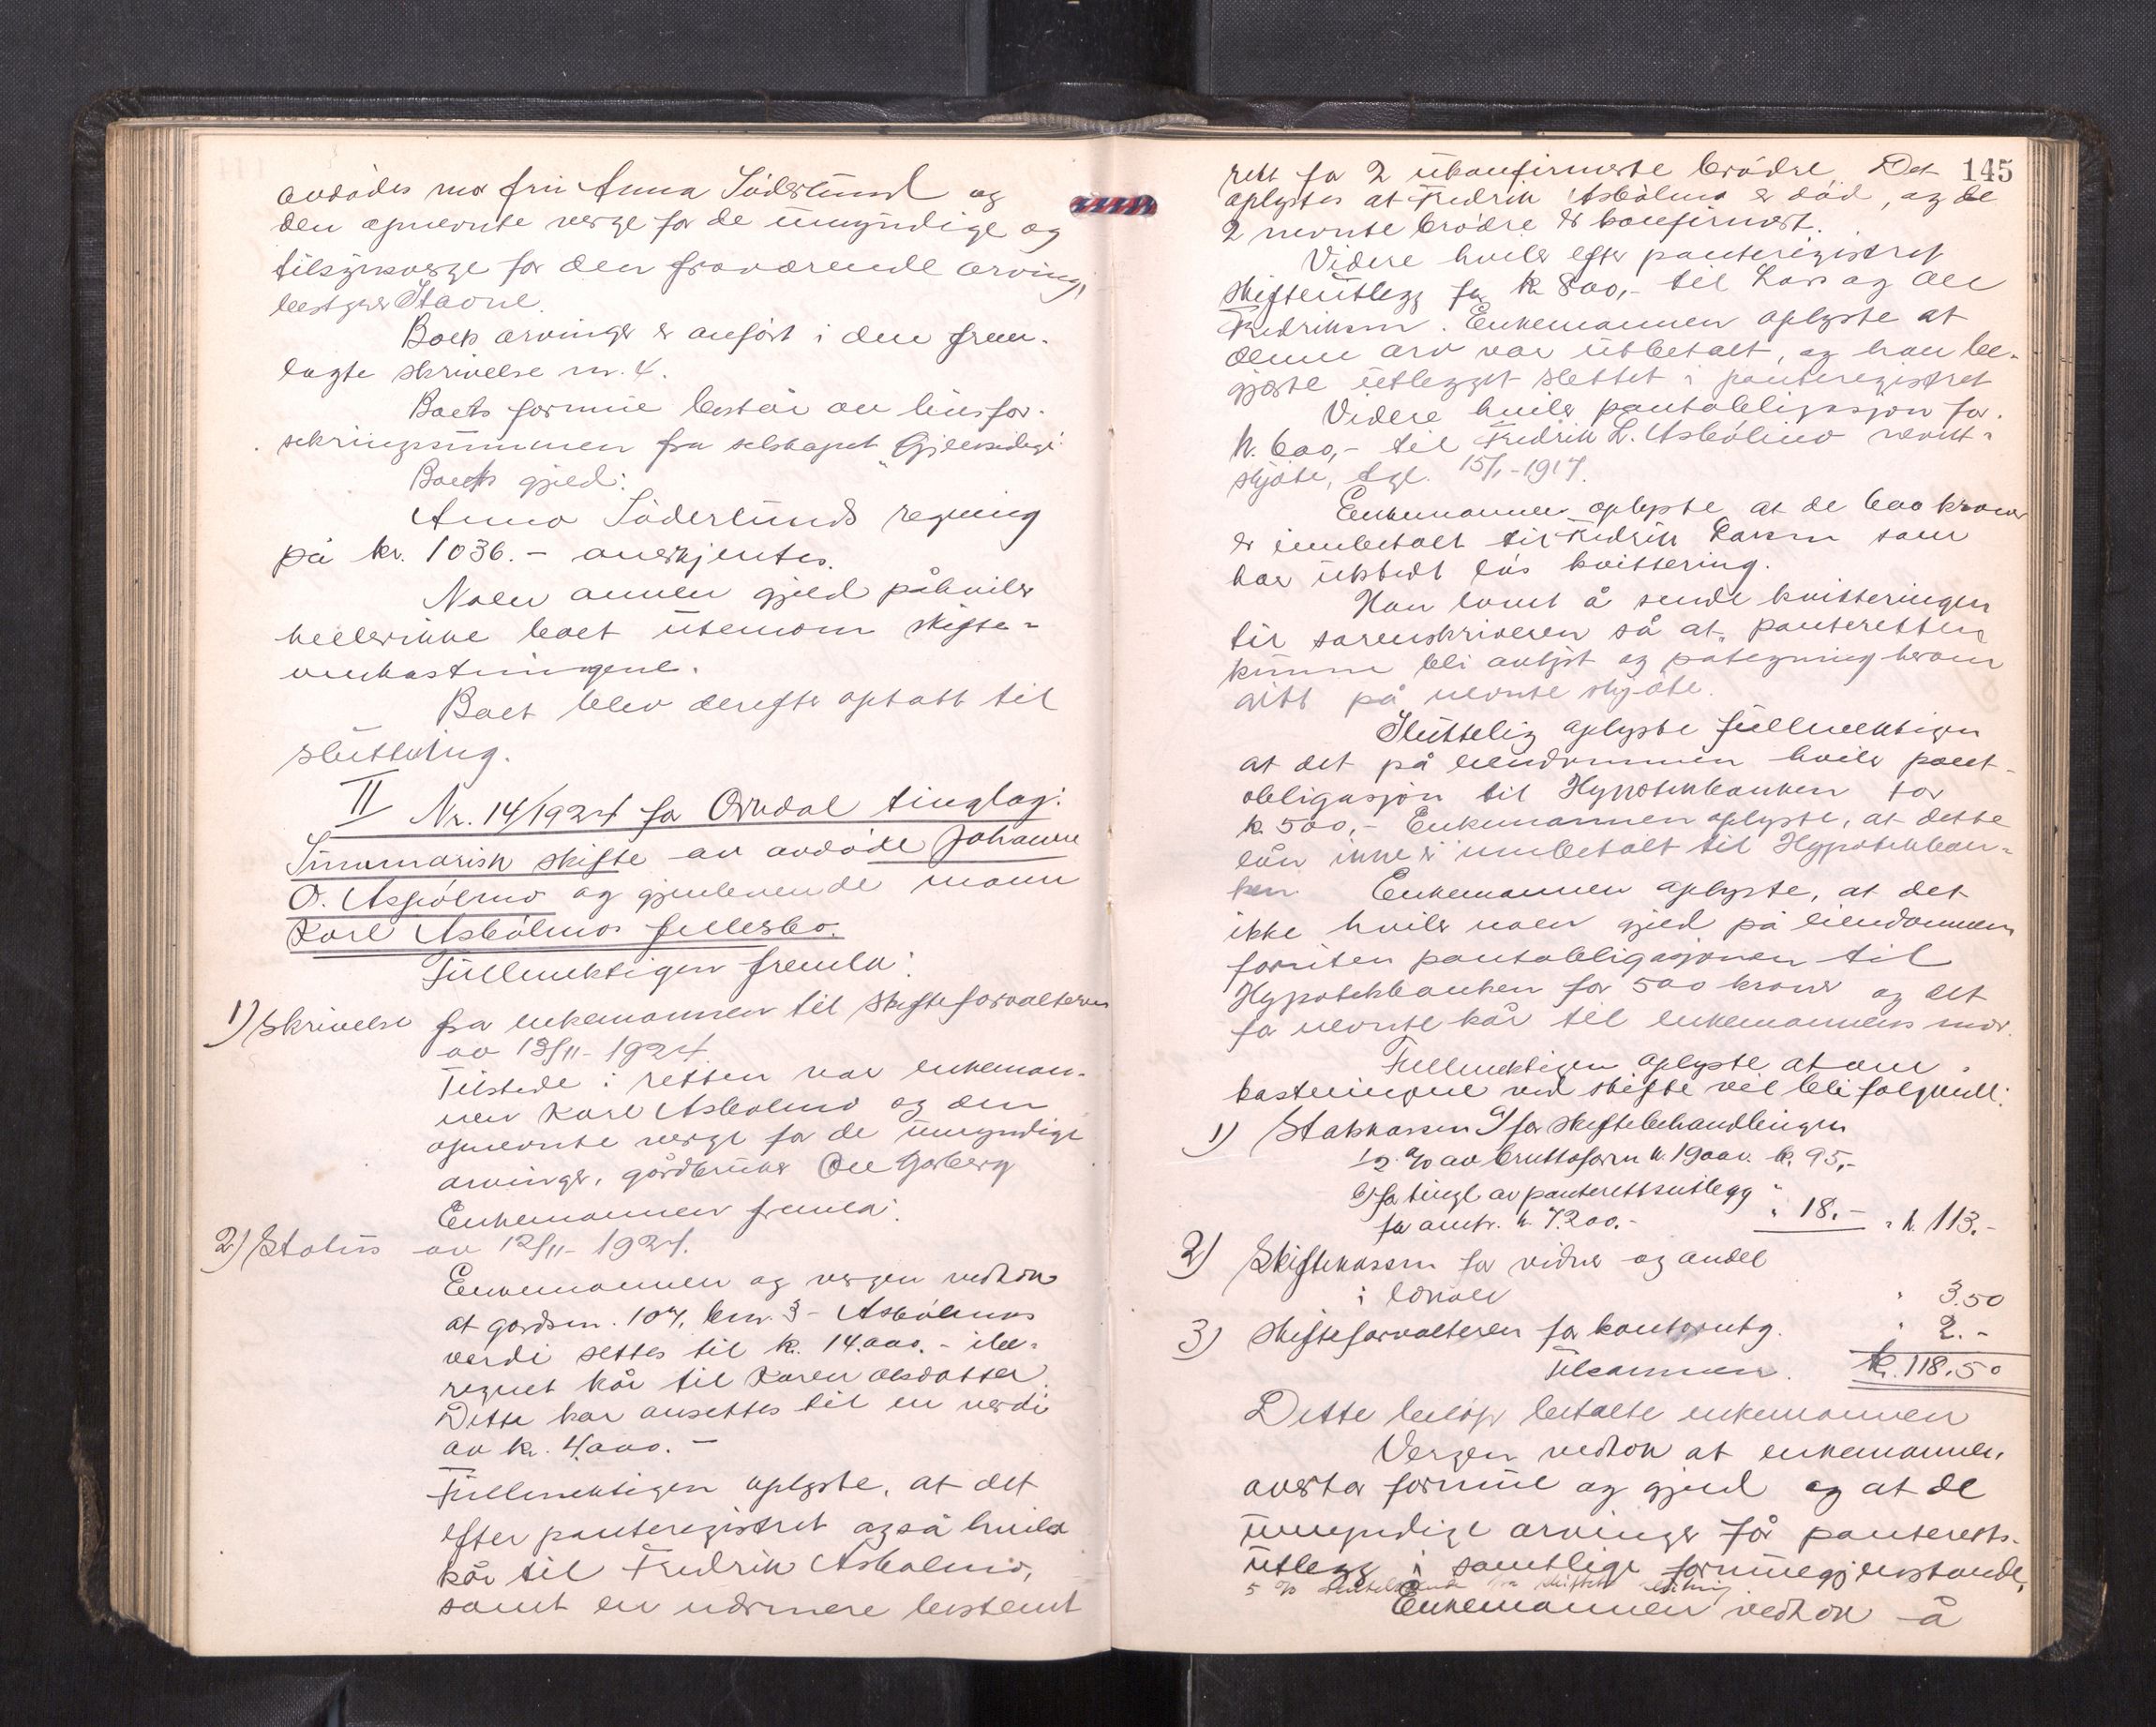 avdødes mor fru Anna Söderlund og
den opnevnte verge for de umyndige og
tilsynsverge for den fraværende arving,
bestyrer Staone.
Boets arvinger er anført i den frem-
lagte skrivelse nr. 4.
Boets formue består av livsfor-
sikringssummen fra selskapet "Gjensidige".
Boets gjeld:
Anna Söderlunds regning
på kr. 1036.- anerkjentes.
Noen annen gjeld påhviler
heller ikke boet utenom skifte-
omkostningene.
Boet blev derefter optatt til
slutning.
II Nr. 14/1924 for Orkdal tinglag:
Summarisk skifte av avdøde Johanne
O. Asbølmo og gjenlevende mann
Karl Asbølmos fellesbo.
Fullmektigen fremla:
1) Skrivelse fra enkemannen til skifteforvalteren
av 13/11-1924.
Tilstede i retten var enkeman-
nen Karl Asbølmo og den
opnevnte verge for de umyndige
arvinger, gårdbruker Ole Garberg
Enkemannen fremla:
2) Status av 12/11-1924.
Enkemannen og vergen vedtok
at gårdsnr. 104, bnr. 3 - Asbølmos
verdi settes til kr. 14.000.- ibe-
regnet kår til Karen Olsdatter.
Dette kår ansettes til en verdi
av kr. 4000.-
Fullmektigen oplyste, at det
efter panteregistret også hviler
kår til Fredrik Asbølmo,
samt en nærmere bestemt
145
rett for 2 ukonfirmerte brødre. Det
oplystes at Fredrik Asbølmo er død, og de
2 nevnte brødre er konfirmert.
Videre hviler efter panteregistret
skifteutlegg for kr. 800,- til Lars og Ole
Fredriksen. Enkemannen oplyste at
denne arv var utbetalt, og han be-
gjærte utlegget slettet i panteregistret
Videre hviler pantobligasjon for
kr. 600,- til Fredrik L. Asbølmo nevnt i
skjøte, tgl. 15/1-1917.
Enkemannen oplyste at de 600 kroner
er innbetalt til Fredrik Larsen som
har utstedt løs kvittering.
Han lovet å sende kvitteringen
til sorenskriveren så at panteretten
kunne bli avlyst og påtegning herom
gitt på nevnte skjøte.
Sluttelig oplyste fullmektigen
at det på eiendommen hviler pant-
obligasjon til Hypotekbanken for
kr. 500,- Enkemannen oplyste, at dette
lån ikke er innbetalt til Hypotekban-
ken. Enkemannen oplyste, at det
ikke hviler noen gjeld på eiendommen
foruten pantobligasjonen til
Hypotekbanken for 500 kroner og det
før nevnte kår til enkemannens mor.
Fullmektigen oplyste at om-
kostningene ved skifte vil bli følgende:
1) Statskassen a) for skiftebehandlingen
1/2 % av bruttoform. kr. 19000. kr. 95,-
b) for tingl. av panterettsutlegg
for omtr. kr. 7.200.- " 18.- = kr. 113.-
2) Skiftekassen for vidner og andel
i lokale " 3.50
3) Skifteforvalteren for kontorutg. " 2.-
Tilsammen. kr. 118.50
Dette beløp betalte enkemannen
Vergen vedtok at enkemannen
overtar formue og gjeld og at de
umyndige arvinger får panteretts-
utlegg i samtlige formuegjenstande,
5 % fra skiftets slutning
Enkemannen vedtok å